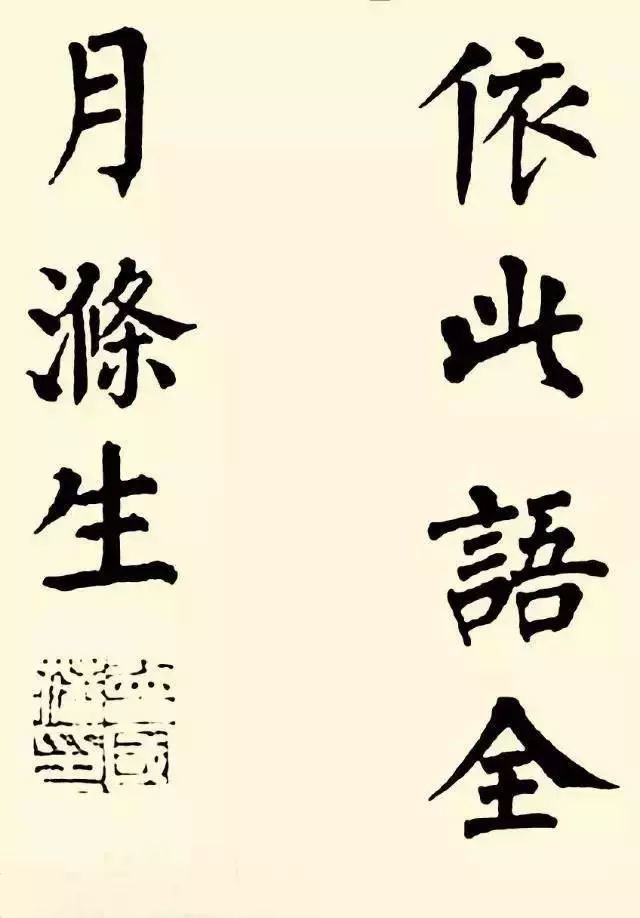 依此語全
月滌生